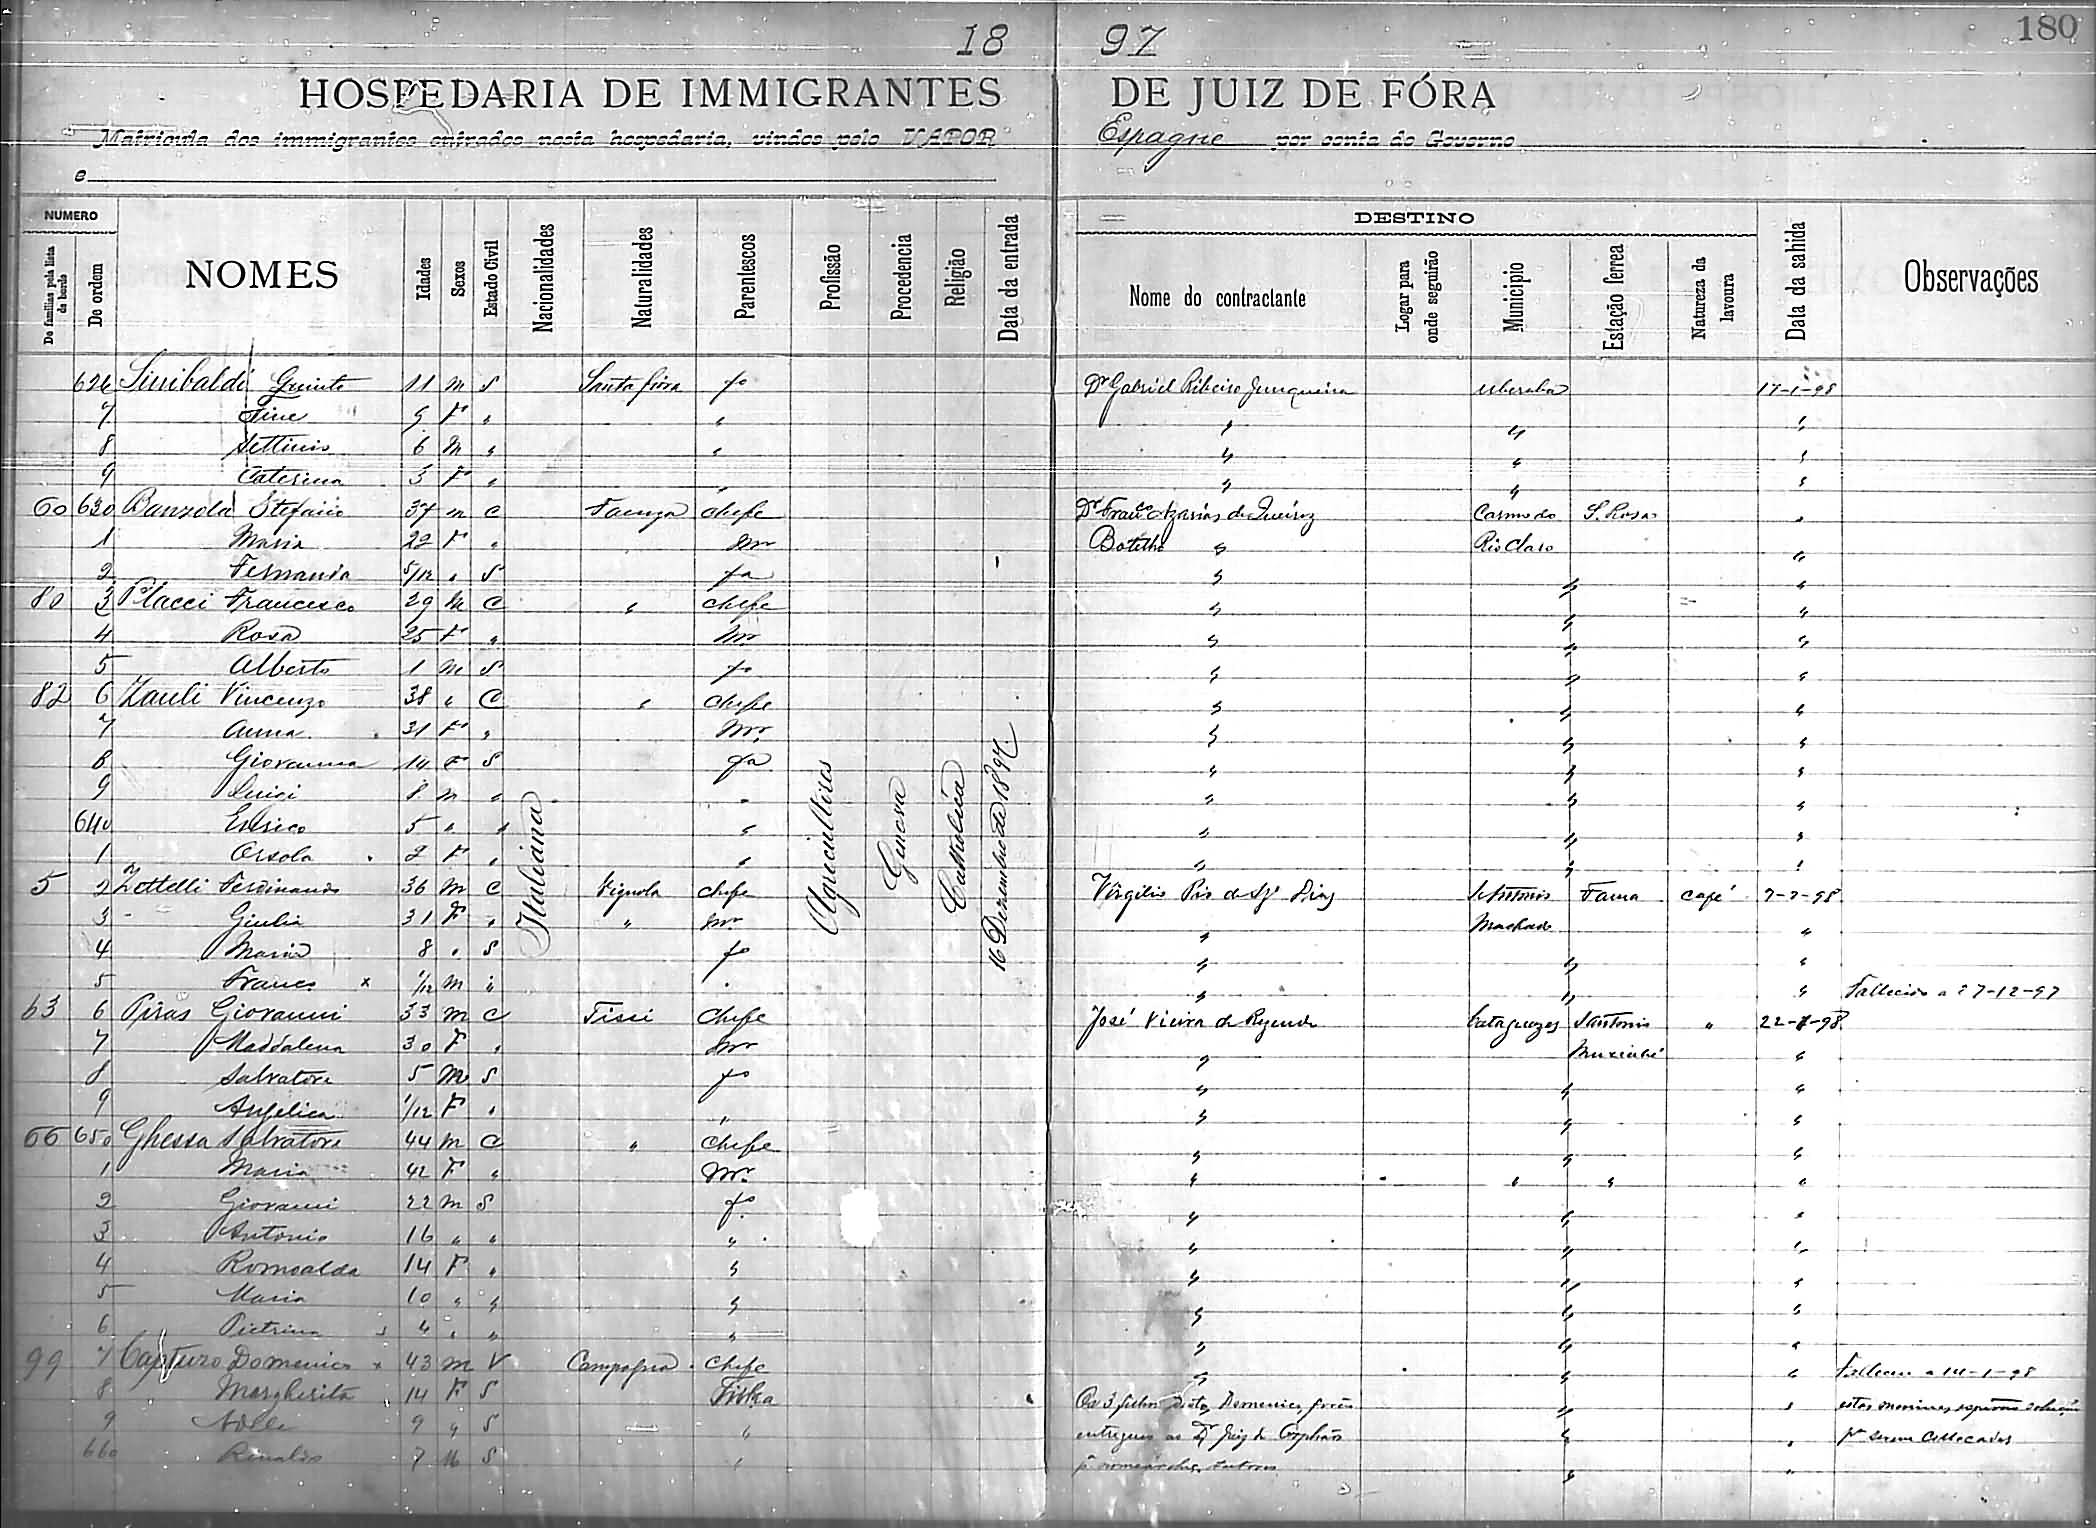 180
18 97
HOSPEDARIA DE IMMIGRANTES DE JUIZ DE FÓRA
Matricula dos immigrantes entrados nesta hospedaria, vindos pelo VAPOR Espagne por conta do Governo
e
NUMERO
De familias pela lista de bordo
De ordem
NOMES
Idades
Sexos
Estado Civil
Nacionalidades
Naturalidades
Parentescos
Profissão
Procedencia
Religião
Data da entrada
DESTINO
Nome do contractante
Logar para onde seguirão
Municipio
Estação ferrea
Natureza da lavoura
Data da sahida
Observações
Italiana
Agricultires
Genova
Catholica
16 Dezembro de 1897.
626 Sinibaldi Quinto 11 m S Santa fiora fo Dr Gabriel Ribeiro Junqueira Uberaba 17-1-98
7 9 F " " " " "
8 Settimio 6 M " " " " "
9 Caterina 3 F " " " " "
60 630 Banzola Stefano 37 m C Faenza Chefe Dr Franco Azarias de Queiroz Carmo do S. Rosa "
1 Maria 22 F " mr Botelho " Rio Claro "
2 Fernanda 5/12 " S fa " " "
80 3 Placci Francesco 29 M C " Chefe " " "
4 Rosa 25 F " Mr " " "
5 Alberto 1 M S fo " " "
82 6 Zauli Vincenzo 38 " C " Chefe " " "
7 Anna 31 F " Mr " " "
8 Giovanna 14 F S fa " " "
9 Luigi 8 m " " " " "
640 Enrico 5 " " " " " "
1 Orsola 2 F " " " " "
5 2 Zottelli Ferdinando 36 m C Vignola Chefe Virgilio Dias S. Antonio Fama Café 7-2-98
3 Giulia 31 F " " mr " Machado "
4 Maria 8 " S fo " " "
5 Franco x 1/12 m " " " " " Fallecido a 27-12-97
63 6 Piras Giovanni 33 m C Tissi Chefe José Vieira de Rezende Cataguazes Santonio " 22-1-98
7 Maddalena 30 F " mr " Muriahé "
8 Salvatore 5 M S fo " " "
9 Angelica 1/12 F " " " " "
66 650 Ghessa Salvatore 44 m C " Chefe " " "
1 Maria 42 F " Mr " " " "
2 Giovanni 22 m S fo " " "
3 Antonio 16 " " " " " "
4 Romoalda 14 F " " " " "
5 Maria 10 " " " " " "
6 Pietrina 4 " " " " " "
99 7 Capturo Domenico x 43 m V Campagna Chefe " " " Falleceu a 14-1-98
8 Margherita 14 F S Filha Os 3 filhos deste Domenico, forão " " estes menores esperão solução
9 9 " S " entregues ao Dr Juiz de Orphãos " " pa serem collocados
660 Rinaldo 7 M S " pa tutores " "